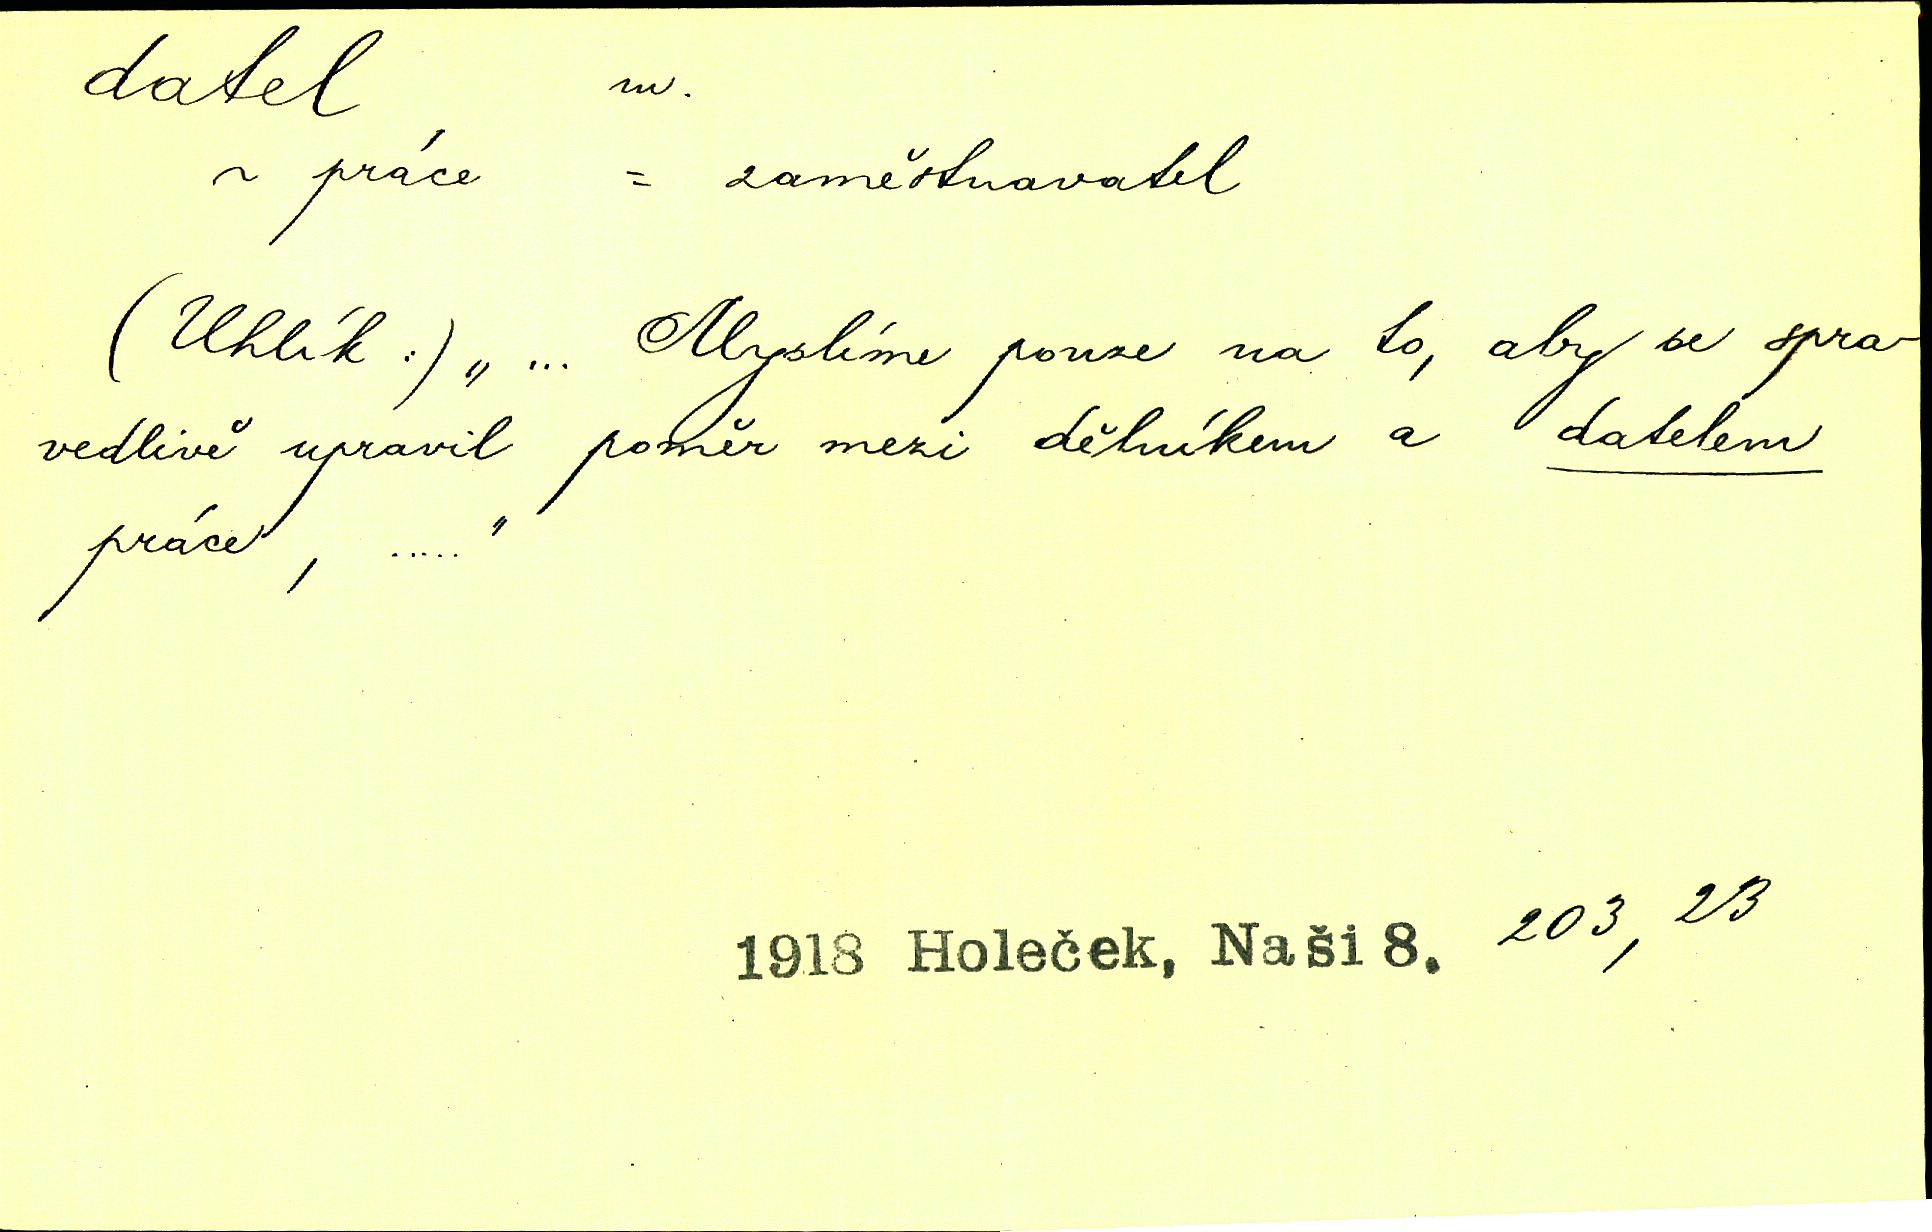 datel m.
~ práce = zaměstnavatel
(Uhlík:) „... Myslíme pouze na to, aby se spra-
vedlivě upravil poměr mezi dělníkem a datelem
práce, ....."
1918 Holeček, Naši 8. 203, 23